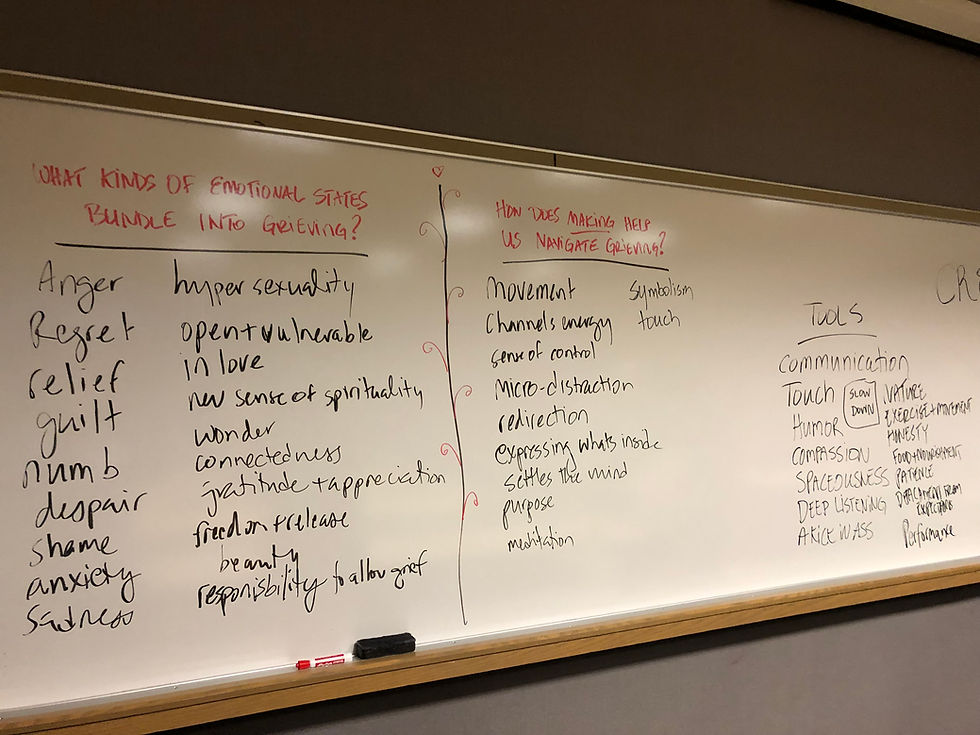 WHAT KINDS OF EMOTIONAL STATES
BUNDLE INTO GRIEVING?
Anger
Regret
relief
guilt
numb
despair
shame
anxiety
sadness
hyper sexuality
open + vulnerable
in love
new sense of spirituality
wonder
connectedness
gratitude + appreciation
freedom + release
beauty
responsibility to allow grief
HOW DOES MAKING HELP
US NAVIGATE GRIEVING?
Movement
Channels energy
sense of control
micro-distraction
redirection
expressing whats inside
settles the mind
purpose
meditation
Symbolism
touch
TOOLS
Communication
Touch
HUMOR
COMPASSION
SPACEOUSNESS
DEEP LISTENING
A KICK IN ASS
SLOW
DOWN
NATURE
EXERCISE + MOVEMENT
HONESTY
FOOD + NOURISHMENT
PATIENCE
DETACHMENT FROM
Performance